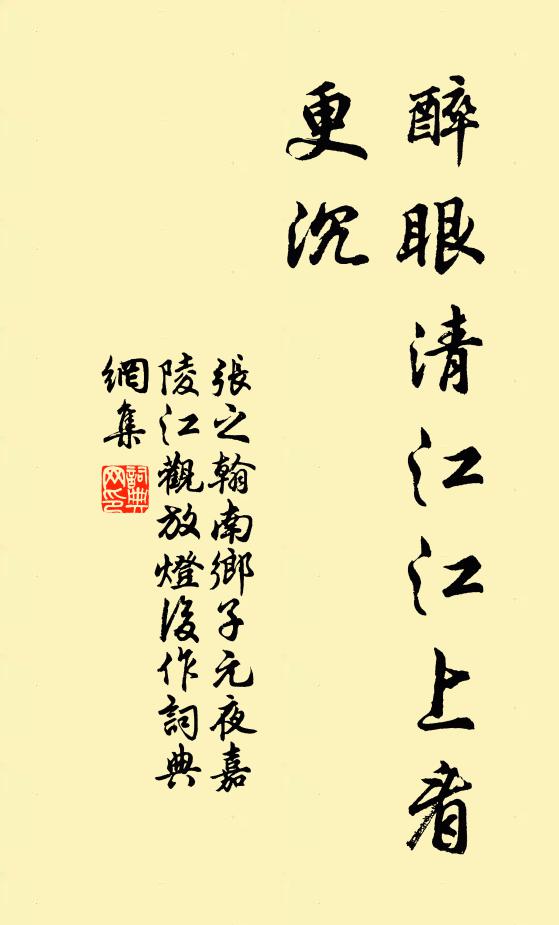 醉眼清江江上看
更沉
張之翰南鄉子元夜嘉
陵江觀放燈後作詞典
網集
詞典
网印